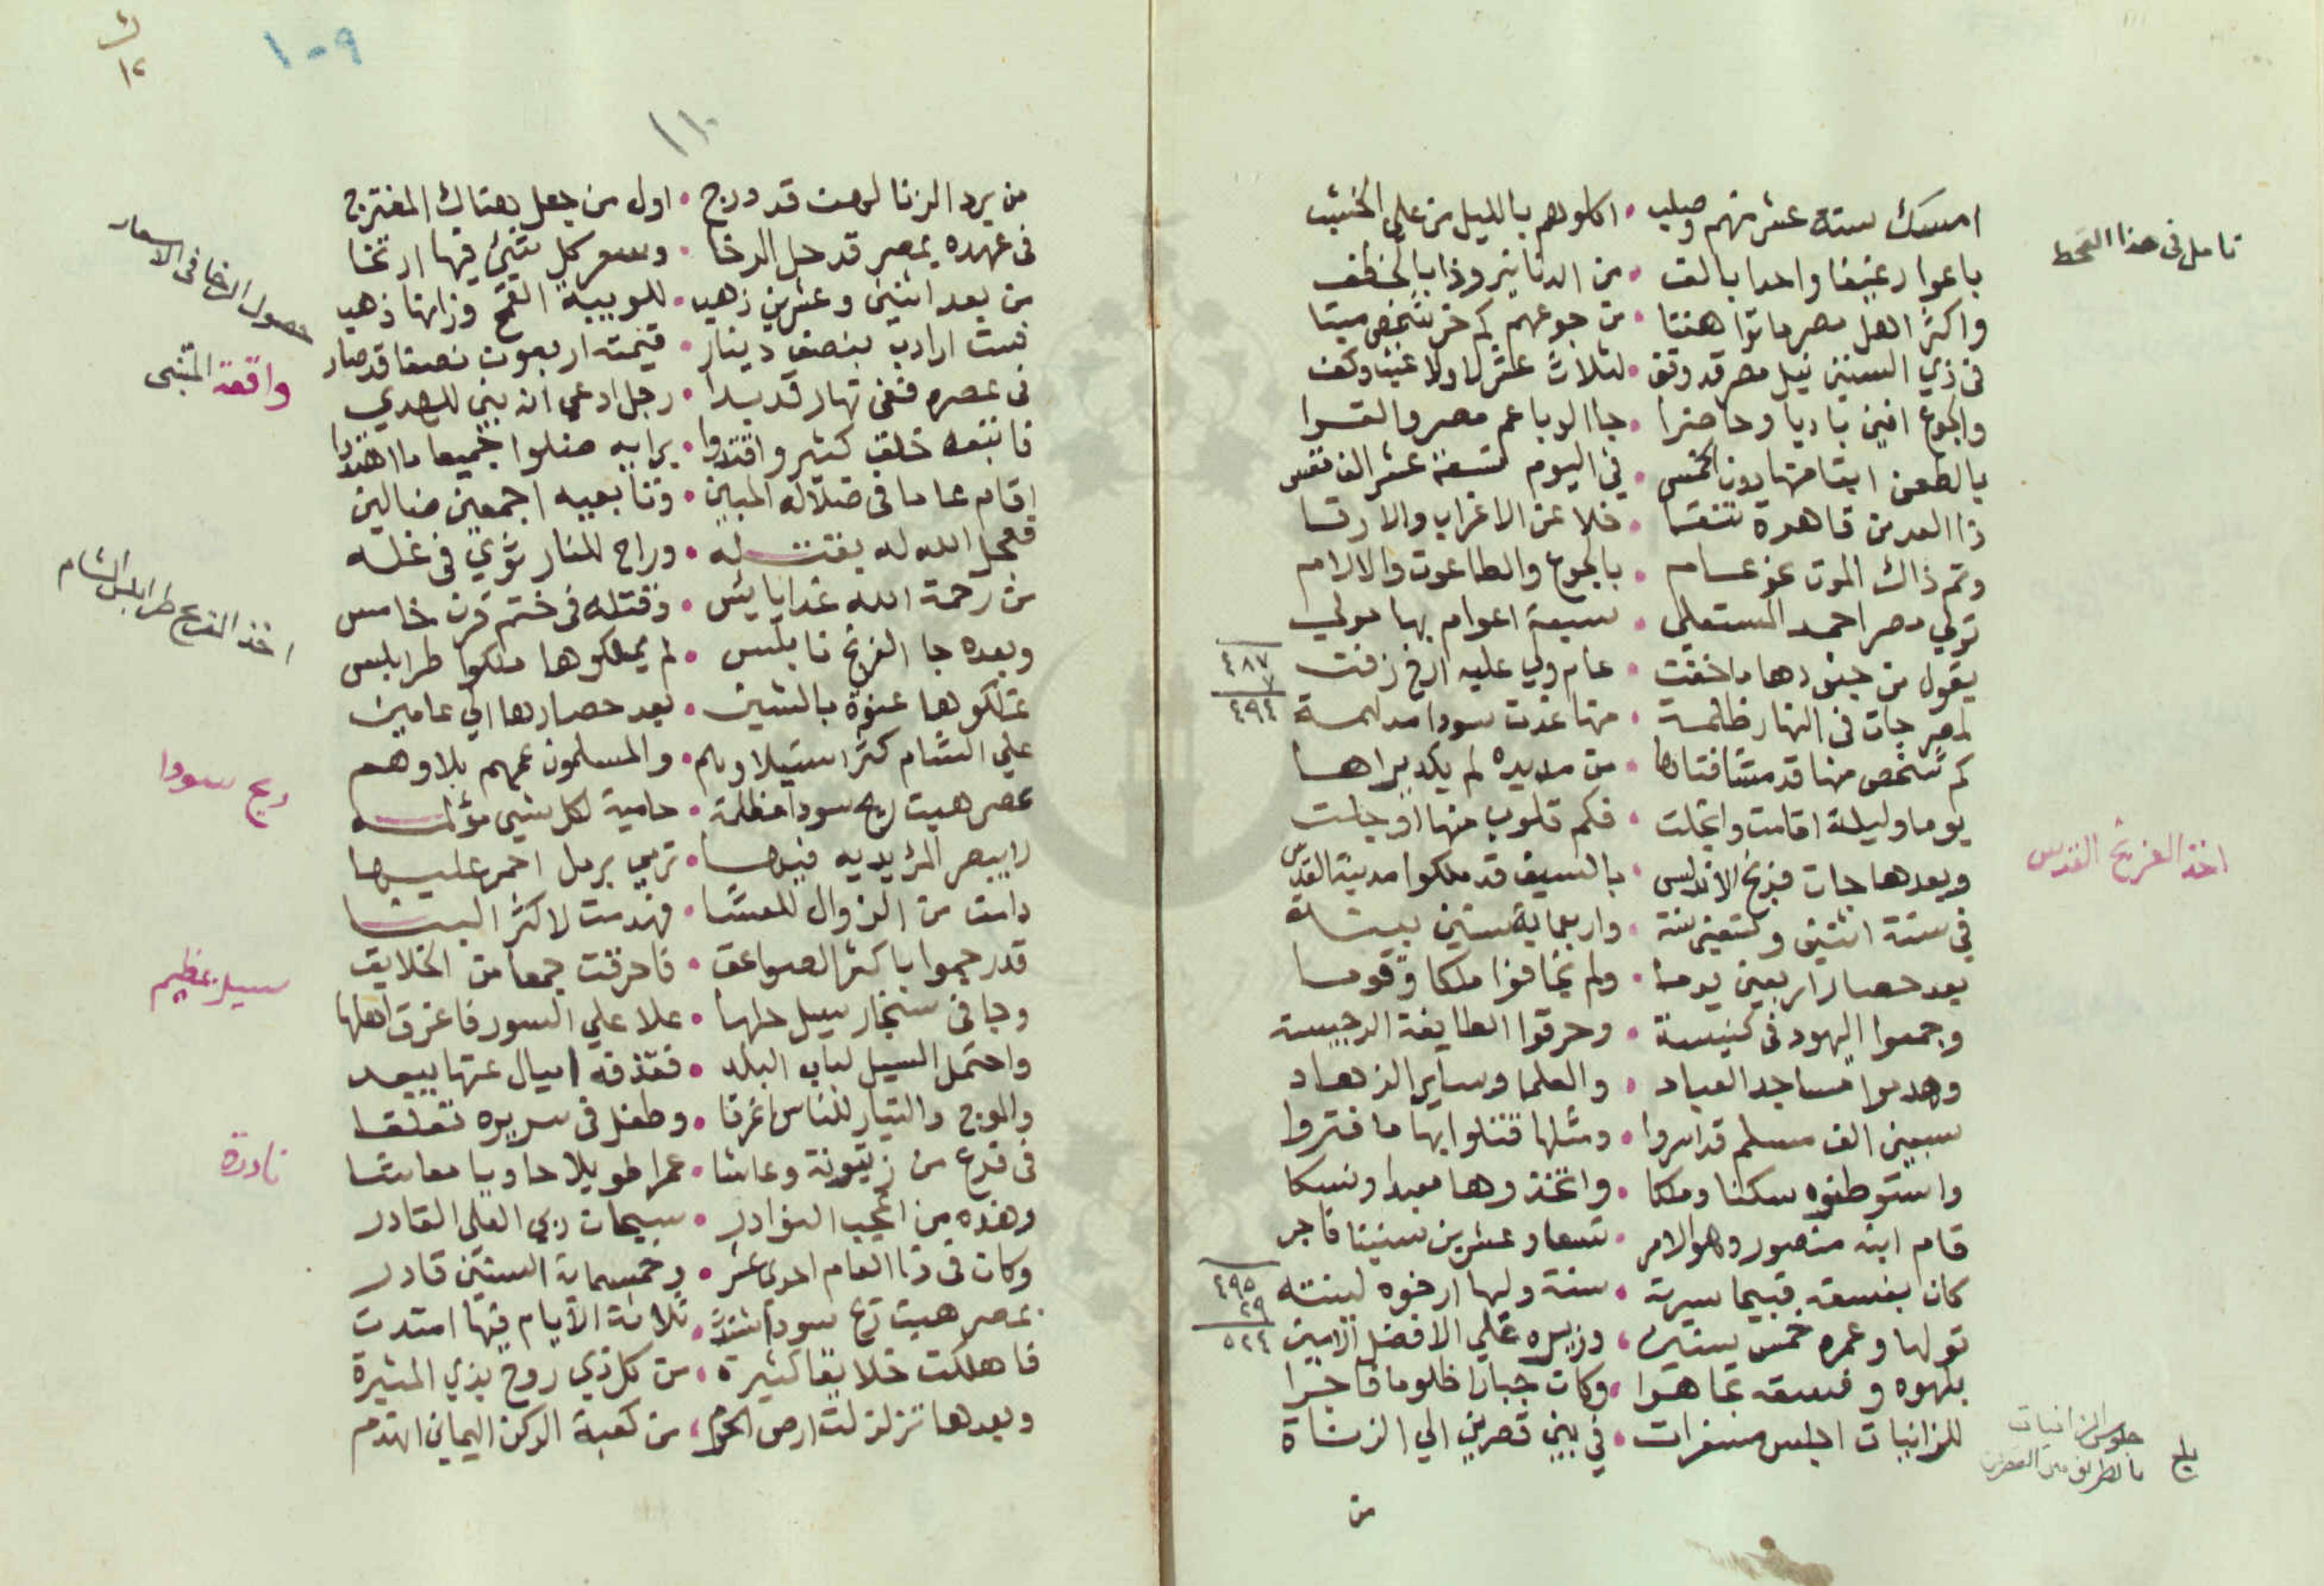 امسك ستة عشر منهم وصلب • اكلوهم بالليل من علي الخشب
تامل في هذا القحط
باعوا رغيفا واحدا بالف • من الدنانير وذا بالخطف
واكثر اهل مصر ماتوا هنتا • من جوعهم كم خر شخص ميتا
في ذي السنين نيل مصر قد وقف • لثلاث عشر لا ولا غيث وكف
والجوع افني باديا وحاضرا • جا الوبا عم مصر والقرا
بالطعن ابقا منها دون الخمس • في اليوم تسعة عشر الف نفس
ذا العد من قاهرة تنتقا • خلا عن الاغراب والارقا
وتم ذاك الموت نحو عام • بالجوع والطاعون والالام
تولي مصر احمد المستعلي • سبعة اعوام بها مولي
يقول من جنودها ما خفت • عام ولي عليه ارخ زفت
٤٨٧
٧
٤٩٤
لمصر جات في النهار ظلمة • منها غدت سودا مدلهمة
كم شخص منها قد مشا فتاها • من مد يده لم يكد يراها
يوما وليلة اقامت وانجلت • فكم قلوب منها اوجلت
وبعدها جات فرنج الاندلس • بالسيف قد ملكوا مدينة القدس
اخذ الفرنج القدس
في سنة اثنين وتسعين سنة • واربعماية سنين بينة
بعد حصار اربعين يوما • ولم يخافوا ملكا وقوما
وجمعوا اليهود في كنيسة • وحرقوا الطايفة الرجيسة
وهدموا مساجد العباد • والعلما وساير الزهاد
سبعين الف مسلم قد اسروا • ومثلها قتلوا بها ما فتروا
واستوطنوه سكنا وملكا • واتخذوها معبدا ونسكا
قام ابنه منصور وهو الامر • تسعا وعشرين سنينا فاجر
كان بفسقه قبيحا سيرته • سنة ولها ارخوه لبنته
٤٩٥
٢٩
٥٢٤
تولها وعمره خمس سنين • وزيره علي الافضل الامين
بلهوه وفسقه تجاهرا • وكان جبارا ظلوما فاجرا
للزانيات اجلس مسفرات • في بين قصرين الي الزناة
جلوس الزانيات
بالطريق بين القصرين
من
١٠٩
١٢
١١٠
من يرد الزنا لهن قد درج • اول من جعل بهتاك المفترج
في عهده بمصر قد حل الرخا • وسعر كل شي فيها ارتخا
حصول الرخا في الاسعار
من بعد اثنين وعشرين ذهب • للويبة القمح وزانها ذهب
ست ارادب بنصف دينار • قيمته اربعون نصفا قد صار
واقعة المتنبي
في عصره ففي نهار قد بدا • رجل ادعي انه نبي للهدي
فاتبعه خلق كثير واقتدوا • برايه ضلوا جميعا ما اهتدوا
اقام عاما في ضلاله المبين • وتابعيه اجمعين ضالين
فعجل الله له بقتله • وراح للنار ثوي في غله
من رحمة الله غدا يايس • وقتله في ختم قرن خامس
اخذ الفرنج طرابلس الشام
وبعده جا الفرنج نابلس • لم يملكوها ملكوا طرابلس
تملكوها عنوة بالشين • بعد حصارها الي عامين
علي الشام كثر استيلاوهم • والمسلمون عمهم بلاوهم
ريح سودا
بمصر هبت ريح سودا مظلمة • حامية لكل شي مؤلمه
لا يبصر المرء يديه فيها • ترمي برمل احمر عليها
دامت من الزوال للعشا • فهدمت لاكثر البنا
قد رجموا باكثر الصواعق • فاحرقت جمعا من الخلايق
سيل عظيم
وجا في سنجار سيل حلها • علا علي السور فاغرق اهلها
واحتمل السيل لباب البلد • فقذفه اميال عنها ببعد
والموج والتيار للناس اغرقا • وطفل في سريره تعلقا
نادرة
في فرع من زيتونة وعاشا • عمرا طويلا حاويا معاشا
وهذه من اعجب النوادر • سبحان ربي العلي القادر
وكان في ذا العام احدي عشر • وخمسماية السنين قادر
بمصر هبت ريح سودا شدت • ثلاثة الايام فيها امتدت
فاهلكت خلايقا كثيرة • من كل ذي روح بذي المثيرة
وبعدها تزلزلت ارض الحرم • من كعبة الركن اليماني انهدم